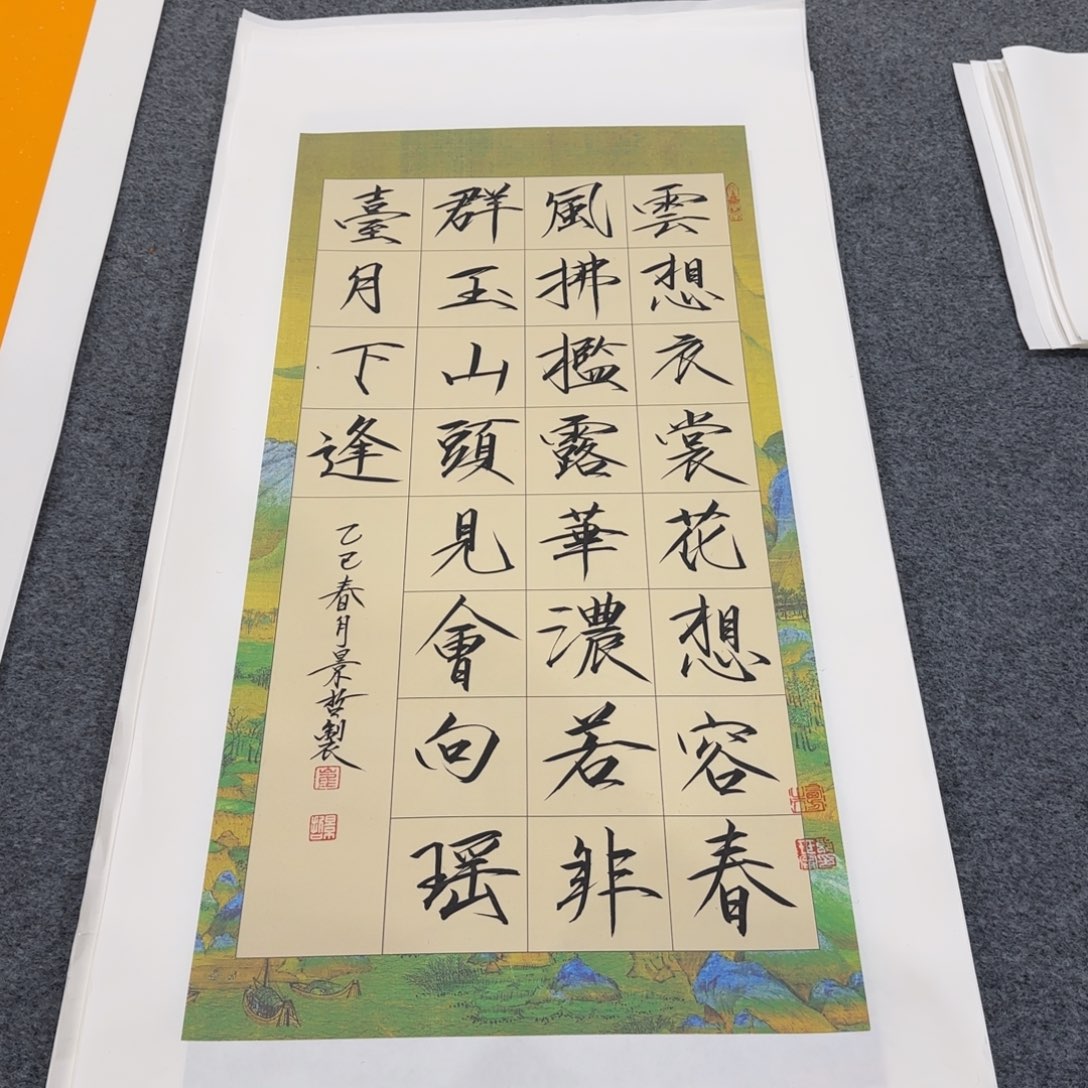 雲想衣裳花想容春
風拂檻露華濃若非
群玉山頭見會向瑶
臺月下逢
乙巳春月景哲製